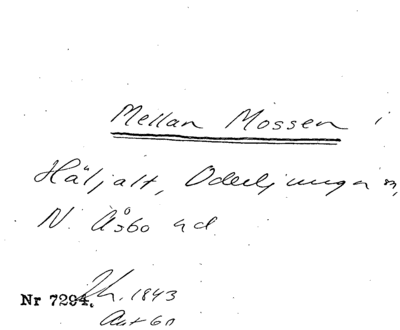 Mellan Mossen i
Häljalt, Oderljunga sn,
N. Åsbo hd
Nr 7294. Lh. 1843